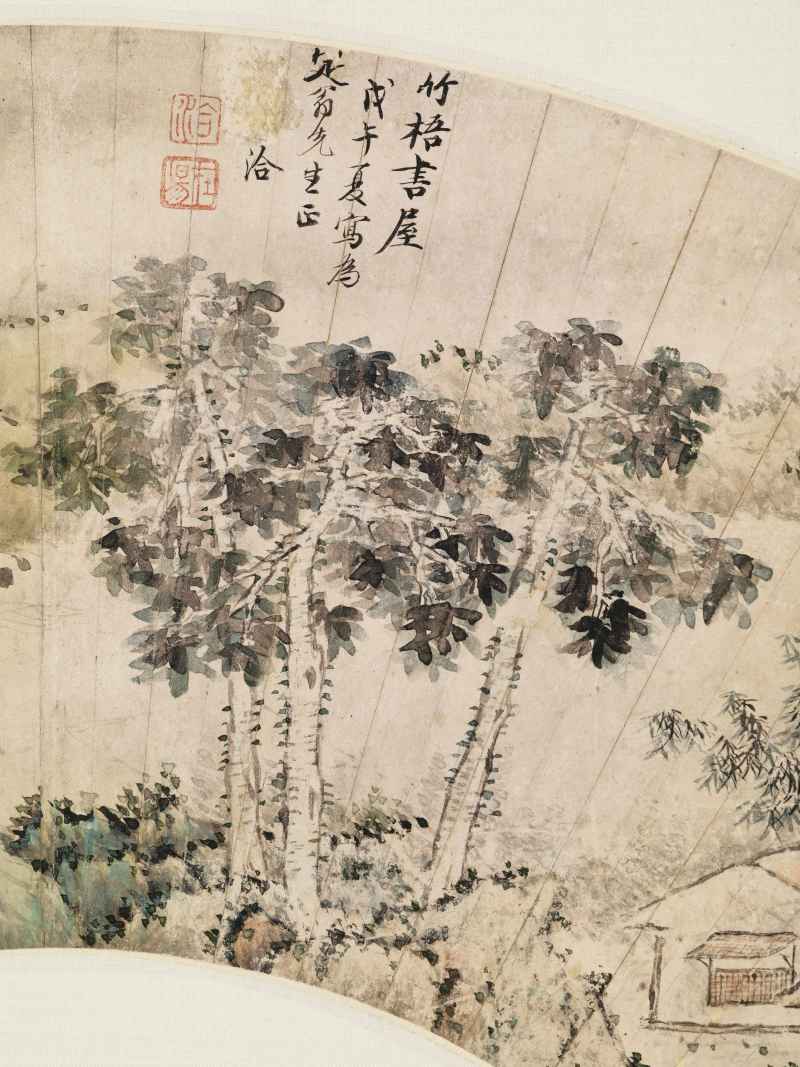 竹梧書屋
戊午夏寫為
翁先生正
洽
洽